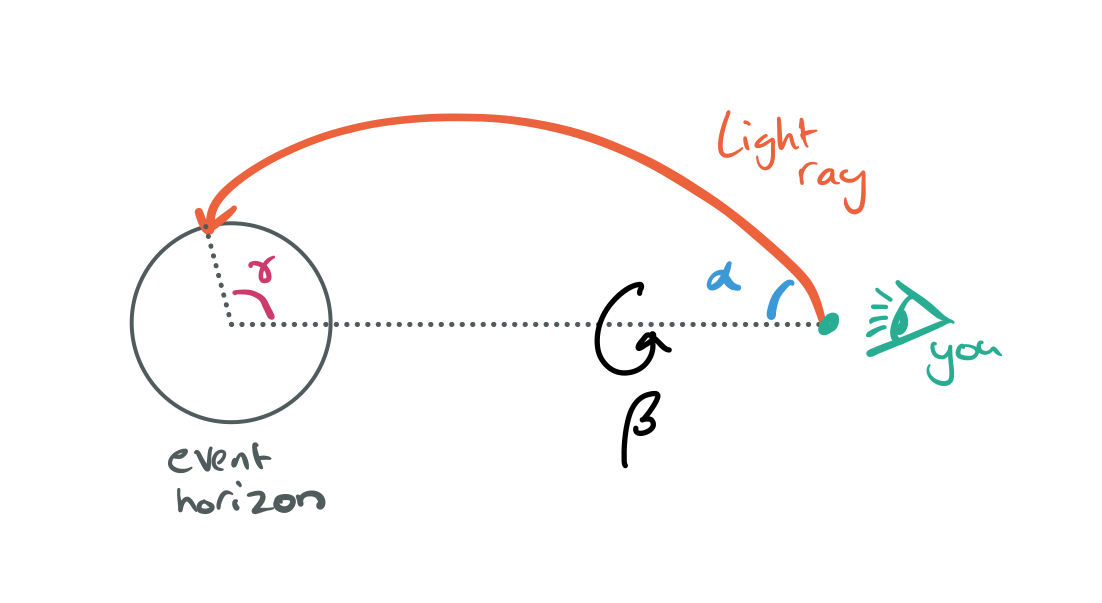 Light
ray
γ
α
you
β
event
horizon